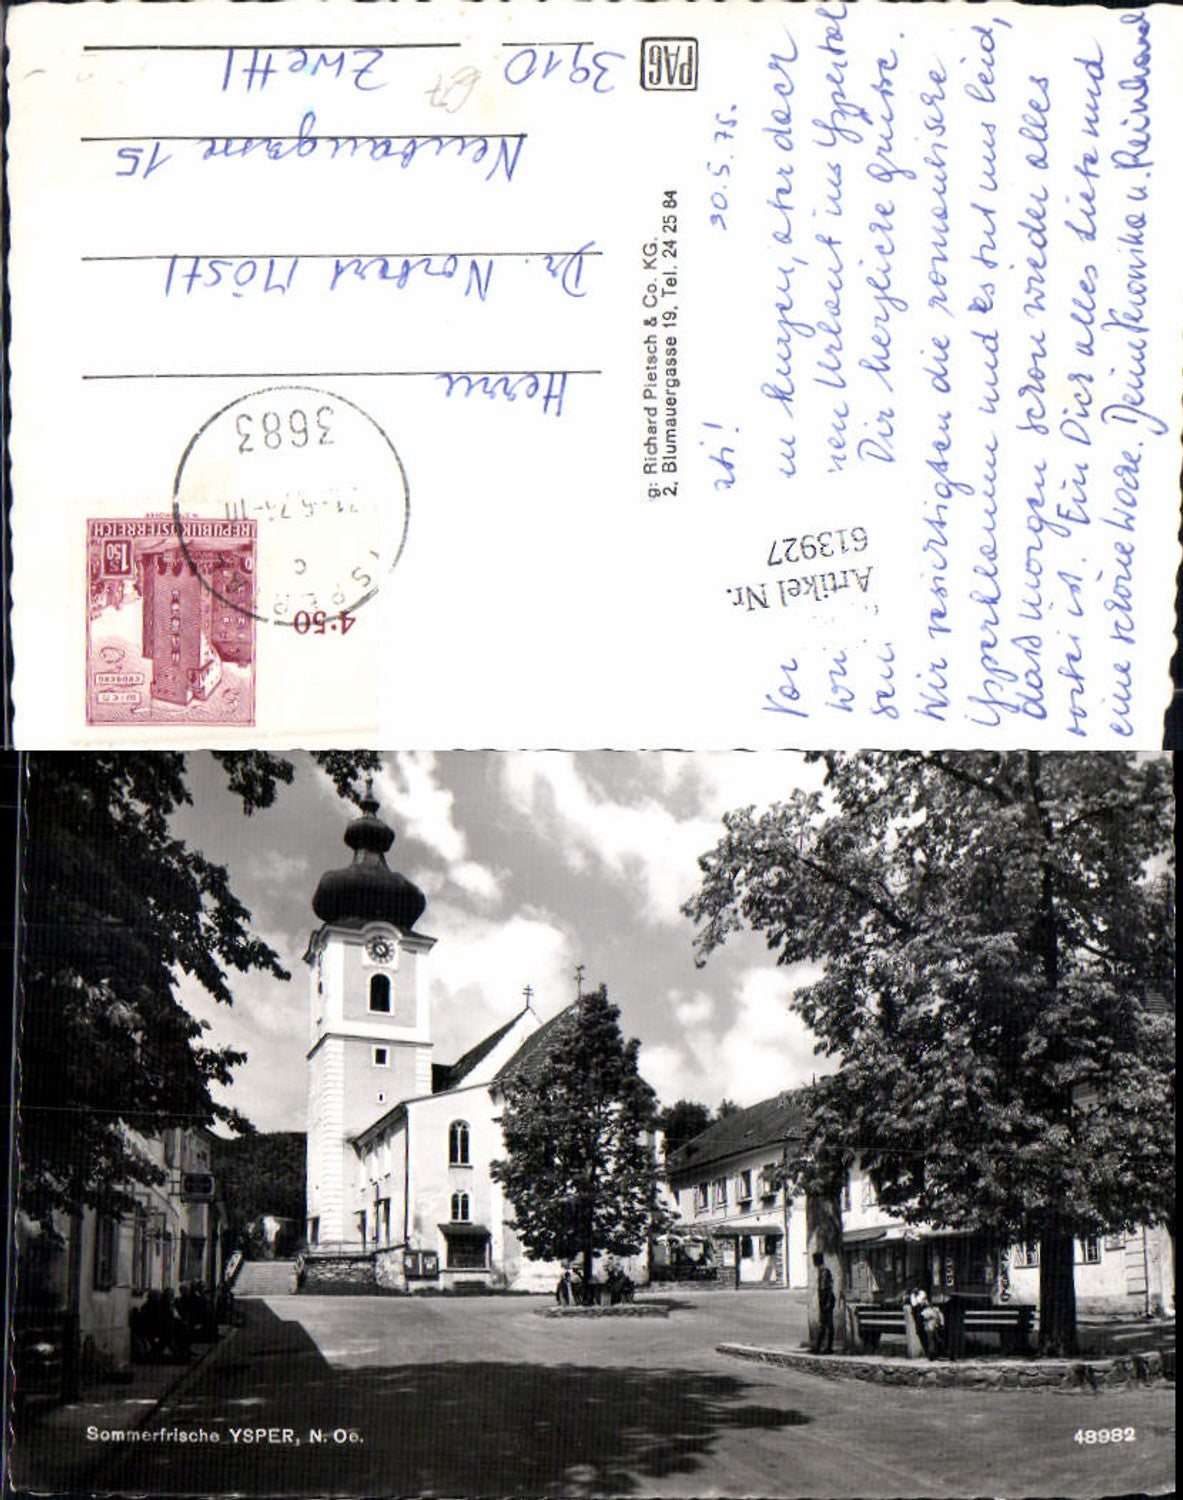 30.5.75.
ati!
Vor
in kurzen, aber doch
wir
nen Urlaub ins Yspertal
sen
Dir herzliche Grüsse.
Wir besichtigten die romantische
Ysperklamm und es tut uns leid,
daß morgen schon wieder alles
vorbei ist. Für Dich alles Liebe und
eine schöne Woche. Deine Veronika u. Reinhard
g: Richard Pietsch & Co. KG.
2, Blumauergasse 19, Tel. 24 25 84
PAG
Artikel Nr.
613927
4·50
REPUBLIK ÖSTERREICH
S 1.50
WIEN III
ERDBERG
YSPER
c
3683
Herrn
Dr. Norbert Möstl
Neubaugasse 15
3910 Zwettl
67
Sommerfrische YSPER, N. Oe.
48982